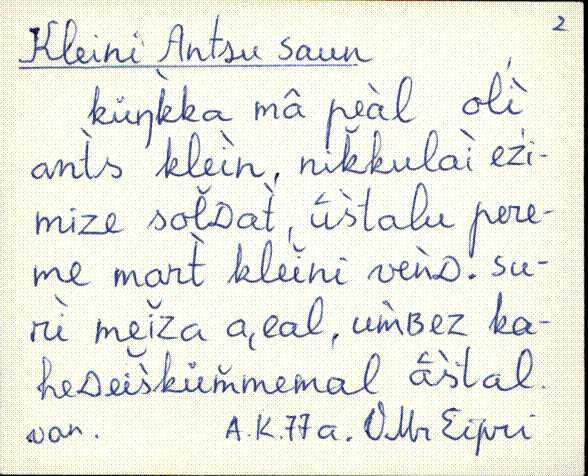 2
Kleini Antsu saun
kŭŋ̀kka mâ peàl olì
ant̀s kleìn, nik̆kulaì eźi-
mize sol̆ᴅat̀, û̀štalu pere-
me mart̀ kleĭni veǹᴅ. su-
rì meĭza a̭eal, um̀ʙez ka-
heᴅeiškŭm̆memal âštal.
van. A.K. 77 a. VMr Eipri